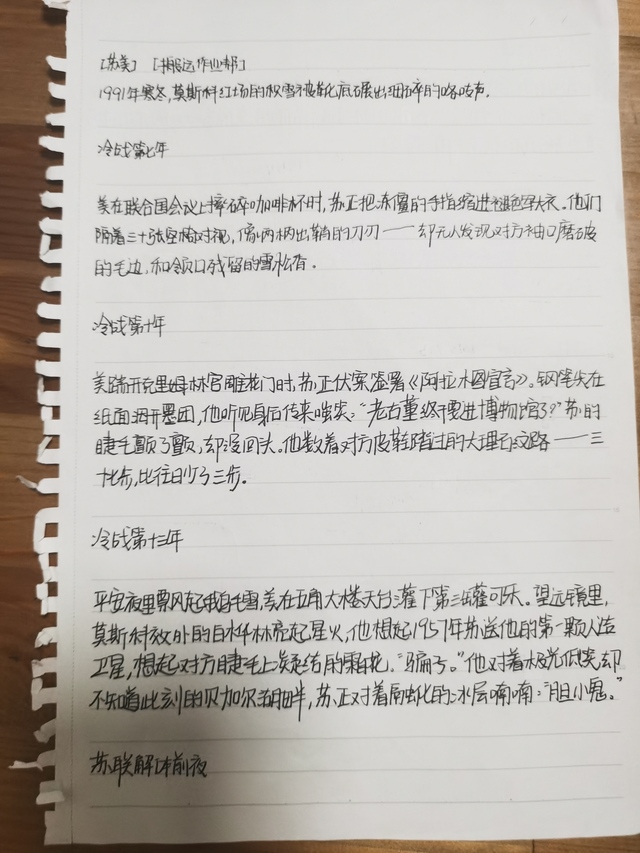 [苏美] [搬运作业帮]
1991年寒冬,莫斯科红场的积雪被靴底碾出细碎的咯吱声.
冷战第七年
美在联合国会议上摔碎咖啡杯时,苏正把冻僵的手指缩进褪色军大衣。他们
隔着三十张空椅对视,像两柄出鞘的刀刃——却无人发现对方袖口磨破
的毛边,和领口残留的雪松香。
冷战第十年
美踹开克里姆林宫雕花门时,苏正伏案签署《阿拉木图宣言》。钢笔尖在
纸面洇开墨团,他听见身后传来嗤笑:"老古董终于要进博物馆了?"苏的
睫毛颤了颤,却没回头。他数着对方皮鞋踏过的大理石纹路——三
十七步,比往日少了三步。
冷战第十三年
平安夜里飘起鹅毛雪,美在五角大楼天台灌下第三罐可乐。望远镜里,
莫斯科效外的白桦林亮起星火,他想起1957年苏送他的第一颗人造
卫星,想起对方睫毛上凝结的霜花。"骗子。"他对着极光低笑,却
不知道此刻的贝加尔湖畔,苏正对着融化的冰层喃喃:"胆小鬼。"
苏联解体前夜